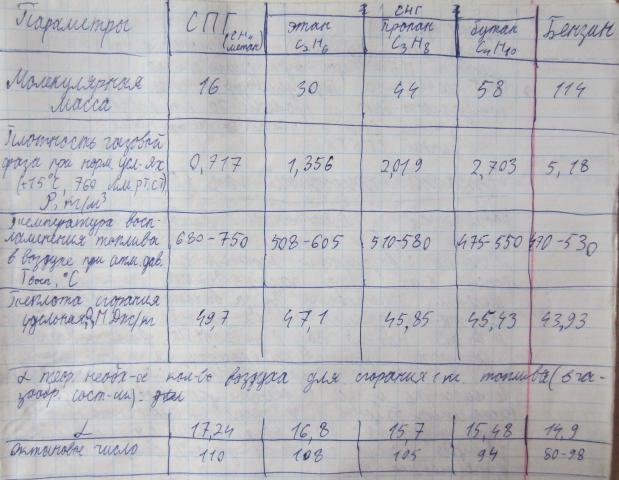 Параметры СПГ (CH4 метан) СНГ Бензин
этан C2H6 пропан C3H8 бутан C4H10
Молекулярная 16 30 44 58 114
Масса
Плотность газовой
фаза при норм. усл-ях 0,717 1,356 2,019 2,703 5,18
(+15°C, 760 мм.рт.ст),
P, кг/м³
Температура восп-
ламенения топлива 680-750 508-605 510-580 475-550 470-530
в воздухе при атм. дав.
Tвосп, °C
Теплота сгорания
удельная, МДж/кг 49,7 47,1 45,85 45,43 43,93
L теор. необх-ое кол-во воздуха для сгорания 1 кг. топлива (в га-
зообр. сост-ии):
L 17,24 16,8 15,7 15,48 14,9
октановое число 110 108 105 94 80-98